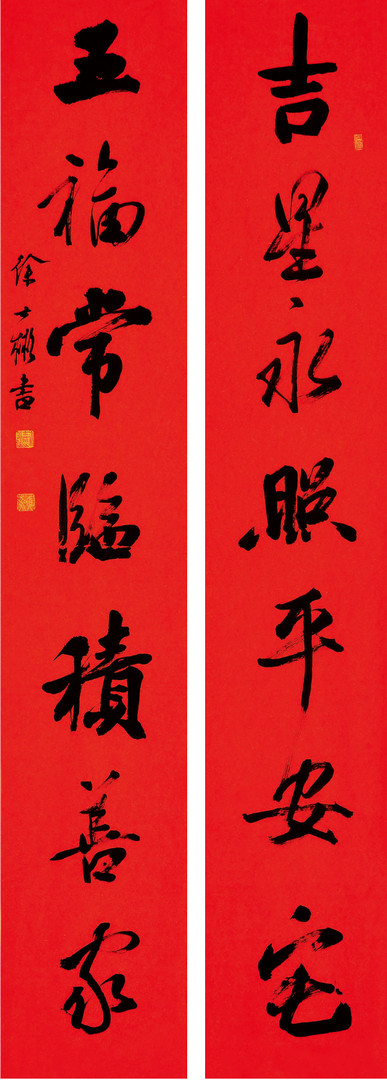 吉星永照平安宅
五福常臨積善家
徐士 書